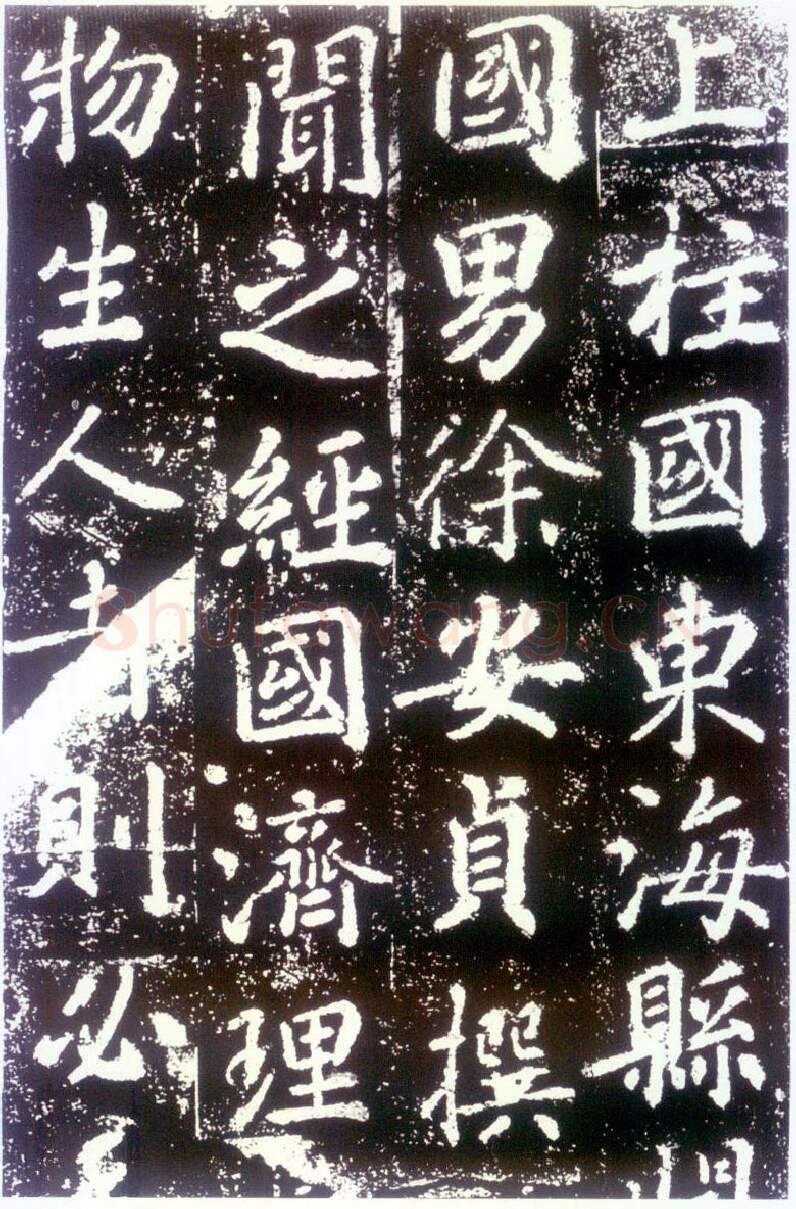 上柱國東海縣開
國男徐安貞撰
聞之經國濟理
物生人者則必
Shufawang.CN